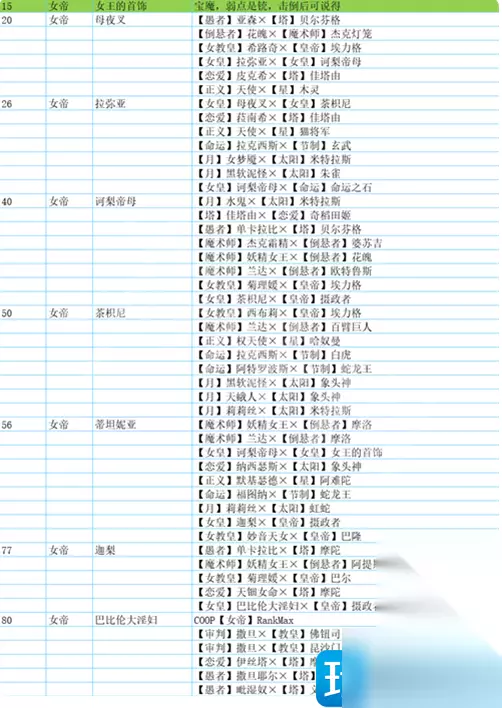 15 女帝 女王的首饰 宝魔，弱点是铳，击倒后可说得
20 女帝 母夜叉 【愚者】亚森×【塔】贝尔芬格
【倒悬者】花魄×【魔术师】杰克灯笼
【女教皇】希路奇×【皇帝】埃力格
【女皇】拉弥亚×【女皇】诃梨帝母
【恋爱】皮克希×【塔】佳塔由
【正义】天使×【星】木灵
26 女帝 拉弥亚 【女皇】母夜叉×【女皇】荼枳尼
【恋爱】菈南希×【塔】佳塔由
【正义】天使×【星】猫将军
【命运】拉克西斯×【节制】玄武
【月】女梦魇×【太阳】米特拉斯
【月】黑软泥怪×【太阳】朱雀
【女皇】诃梨帝母×【命运】命运之石
40 女帝 诃梨帝母 【月】水鬼×【太阳】米特拉斯
【塔】佳塔由×【恋爱】奇稻田姬
【愚者】单卡拉比×【塔】贝尔芬格
【魔术师】杰克霜精×【倒悬者】婆苏吉
【魔术师】妖精女王×【倒悬者】花魄
【魔术师】兰达×【倒悬者】欧特鲁斯
【女教皇】菊理媛×【皇帝】埃力格
【女皇】荼枳尼×【皇帝】摄政者
50 女帝 荼枳尼 【女教皇】西布莉×【皇帝】埃力格
【魔术师】兰达×【倒悬者】百臂巨人
【正义】权天使×【星】哈奴曼
【命运】拉克西斯×【节制】白虎
【命运】阿特罗波斯×【节制】蛇龙王
【月】黑软泥怪×【太阳】象头神
【月】天蛾人×【太阳】象头神
【月】莉莉丝×【太阳】米特拉斯
56 女帝 蒂坦妮亚 【魔术师】妖精女王×【倒悬者】摩洛
【魔术师】兰达×【倒悬者】摩洛
【女皇】诃梨帝母×【女皇】女王的首饰
【恋爱】纳西瑟斯×【太阳】象头神
【正义】默基瑟德×【星】阿难陀
【命运】福图纳×【节制】蛇龙王
【月】莉莉丝×【太阳】虹蛇
【女皇】迦梨×【皇帝】摄政者
【女教皇】妙音天女×【皇帝】巴隆
77 女帝 迦梨 【愚者】单卡拉比×【塔】摩陀
【魔术师】妖精女王×【倒悬者】阿提
【女教皇】菊理媛×【皇帝】巴尔
【恋爱】天钿女命×【塔】摩陀
【女皇】巴比伦大淫妇×【皇帝】摄政
80 女帝 巴比伦大淫妇 COOP【女帝】RankMax
【审判】撒旦×【教皇】佛钮司
【审判】撒旦×【教皇】昆沙门
【恋爱】伊丝塔×【塔】
【愚者】撒旦耶尔×【塔】
【愚者】毗湿奴×【塔】